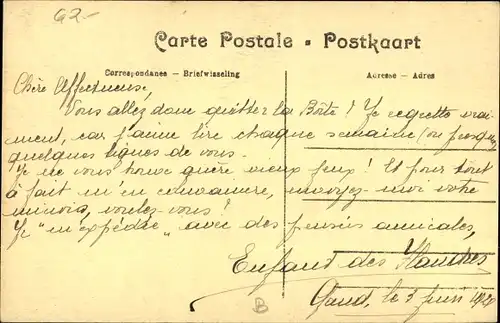 62-
Carte Postale - Postkaart
Correspondance — Briefwisseling
Adresse — Adres
Chère Affectueuse,
Vous allez donc quitter la Boîte? Je regrette vrai-
ment, car j'aime lire chaque semaine (ou presque)
quelques lignes de vous.
Je ne vous trouve guère vieux jeu! Et pour tout
à fait m'en convaincre, envoyez-moi votre
minois, voulez-vous?
Je "m'expédie" avec des pensées amicales,
Enfant des Flandres
Gand, le 3 juin 192
B